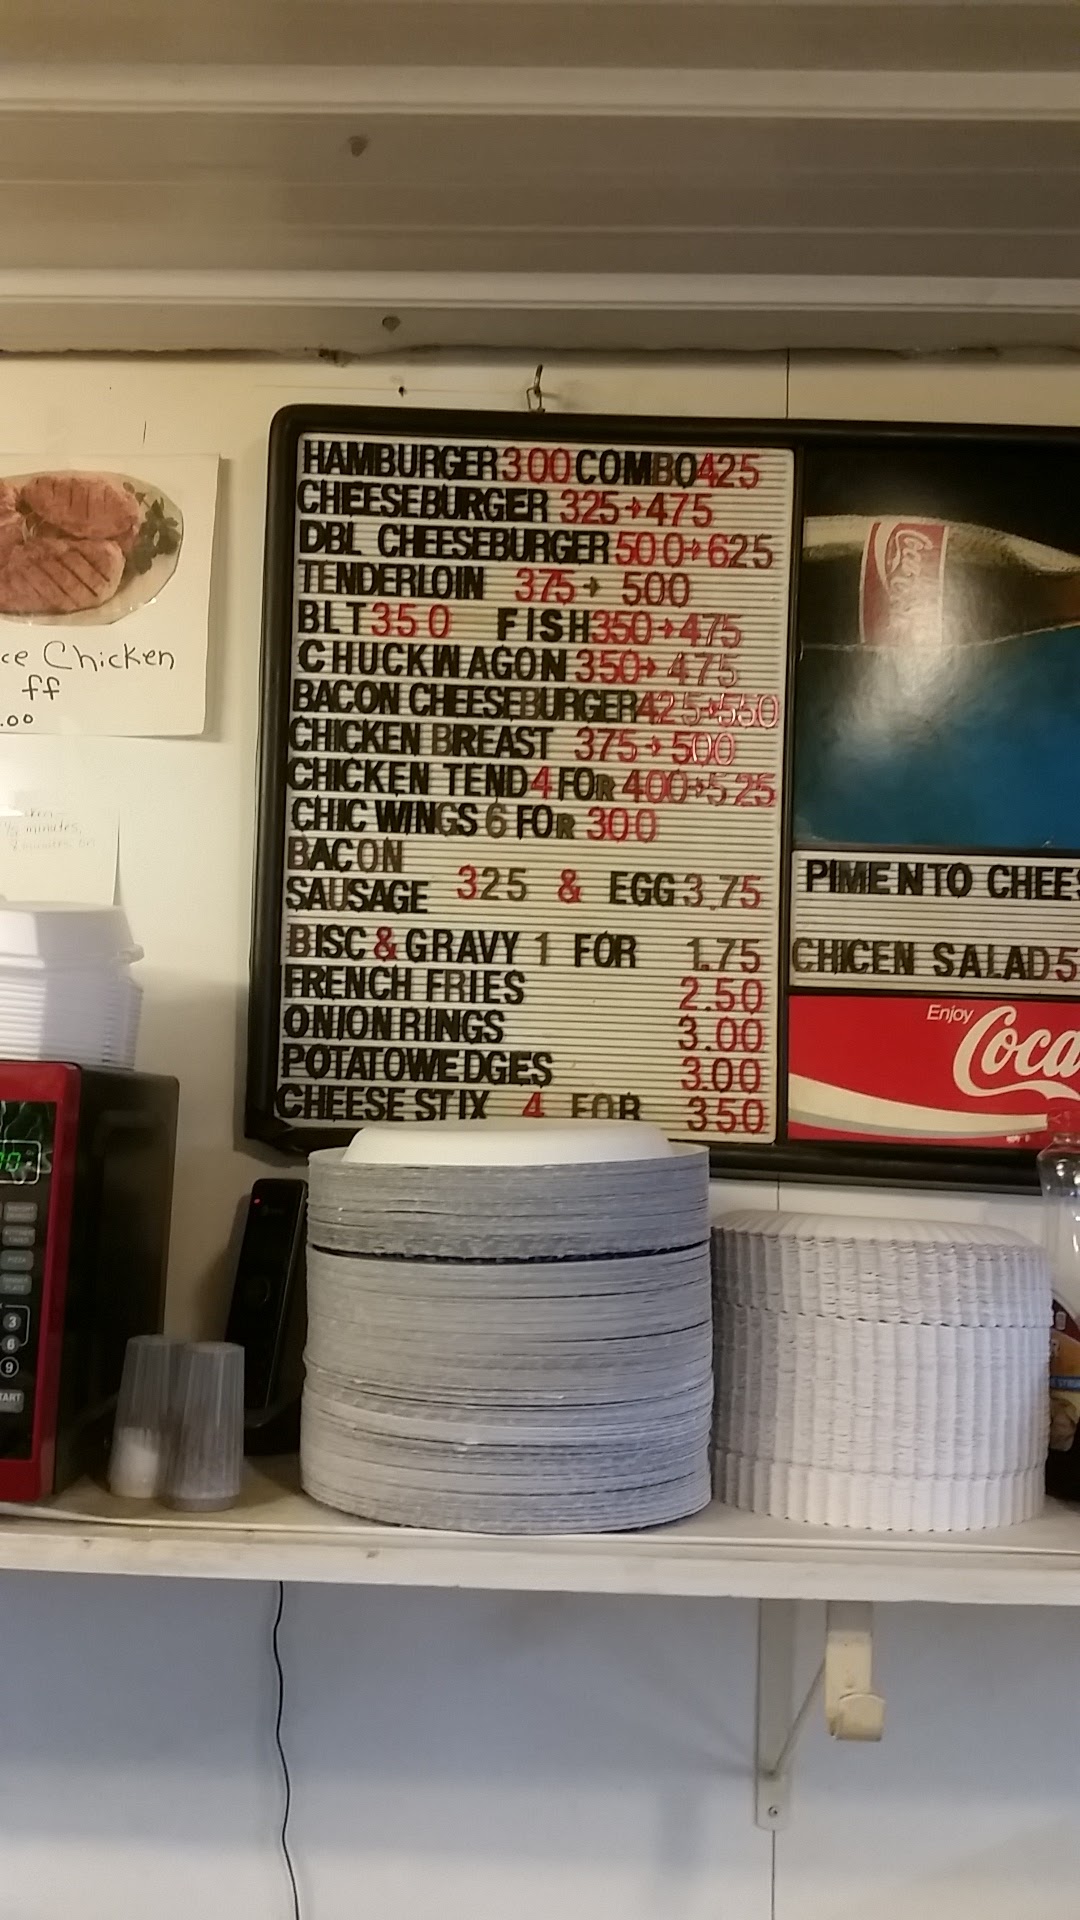 HAMBURGER 300 COMBO 425
CHEESEBURGER 325→475
DBL CHEESEBURGER 500→625
TENDERLOIN 375→ 500
BLT 350 FISH 350→475
CHUCKWAGON 350→ 475
BACON CHEESEBURGER 425→550
CHICKEN BREAST 375→500
CHICKEN TEND 4 FOR 400→525
CHIC WINGS 6 FOR 300
BACON
SAUSAGE 325 & EGG 3.75
BISC & GRAVY 1 FOR 1.75
FRENCH FRIES 2.50
ONION RINGS 3.00
POTATO WEDGES 3.00
CHEESE STIX 4 FOR 350
PIMENTO CHEES
CHICEN SALAD 5
Enjoy
Coca
Coca
ce Chicken
ff
.00
minutes,
PIZZA
3
6
9
TART